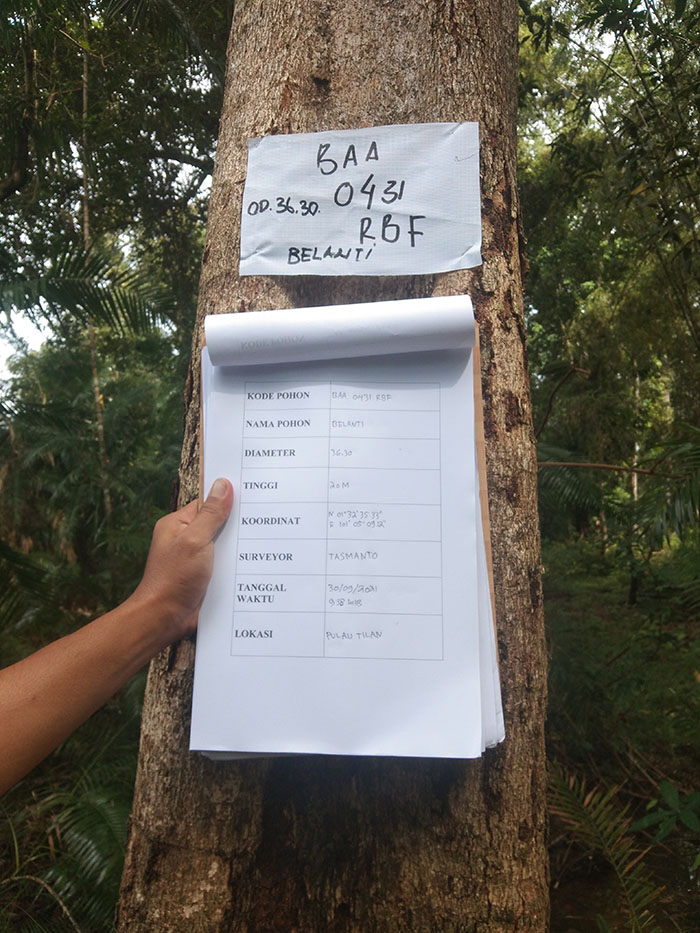 BAA
OD. 36.30. 0431
RBF
BELANTI
KODE POHON BAA 0431 RBF
NAMA POHON BELANTI
DIAMETER 36.30
TINGGI 20 M
KOORDINAT N 01° 32' 35.33"
E 101° 05' 09.12"
SURVEYOR TASMANTO
TANGGAL 30/09/2021
WAKTU 9.38 WIB
LOKASI PULAU TILAN